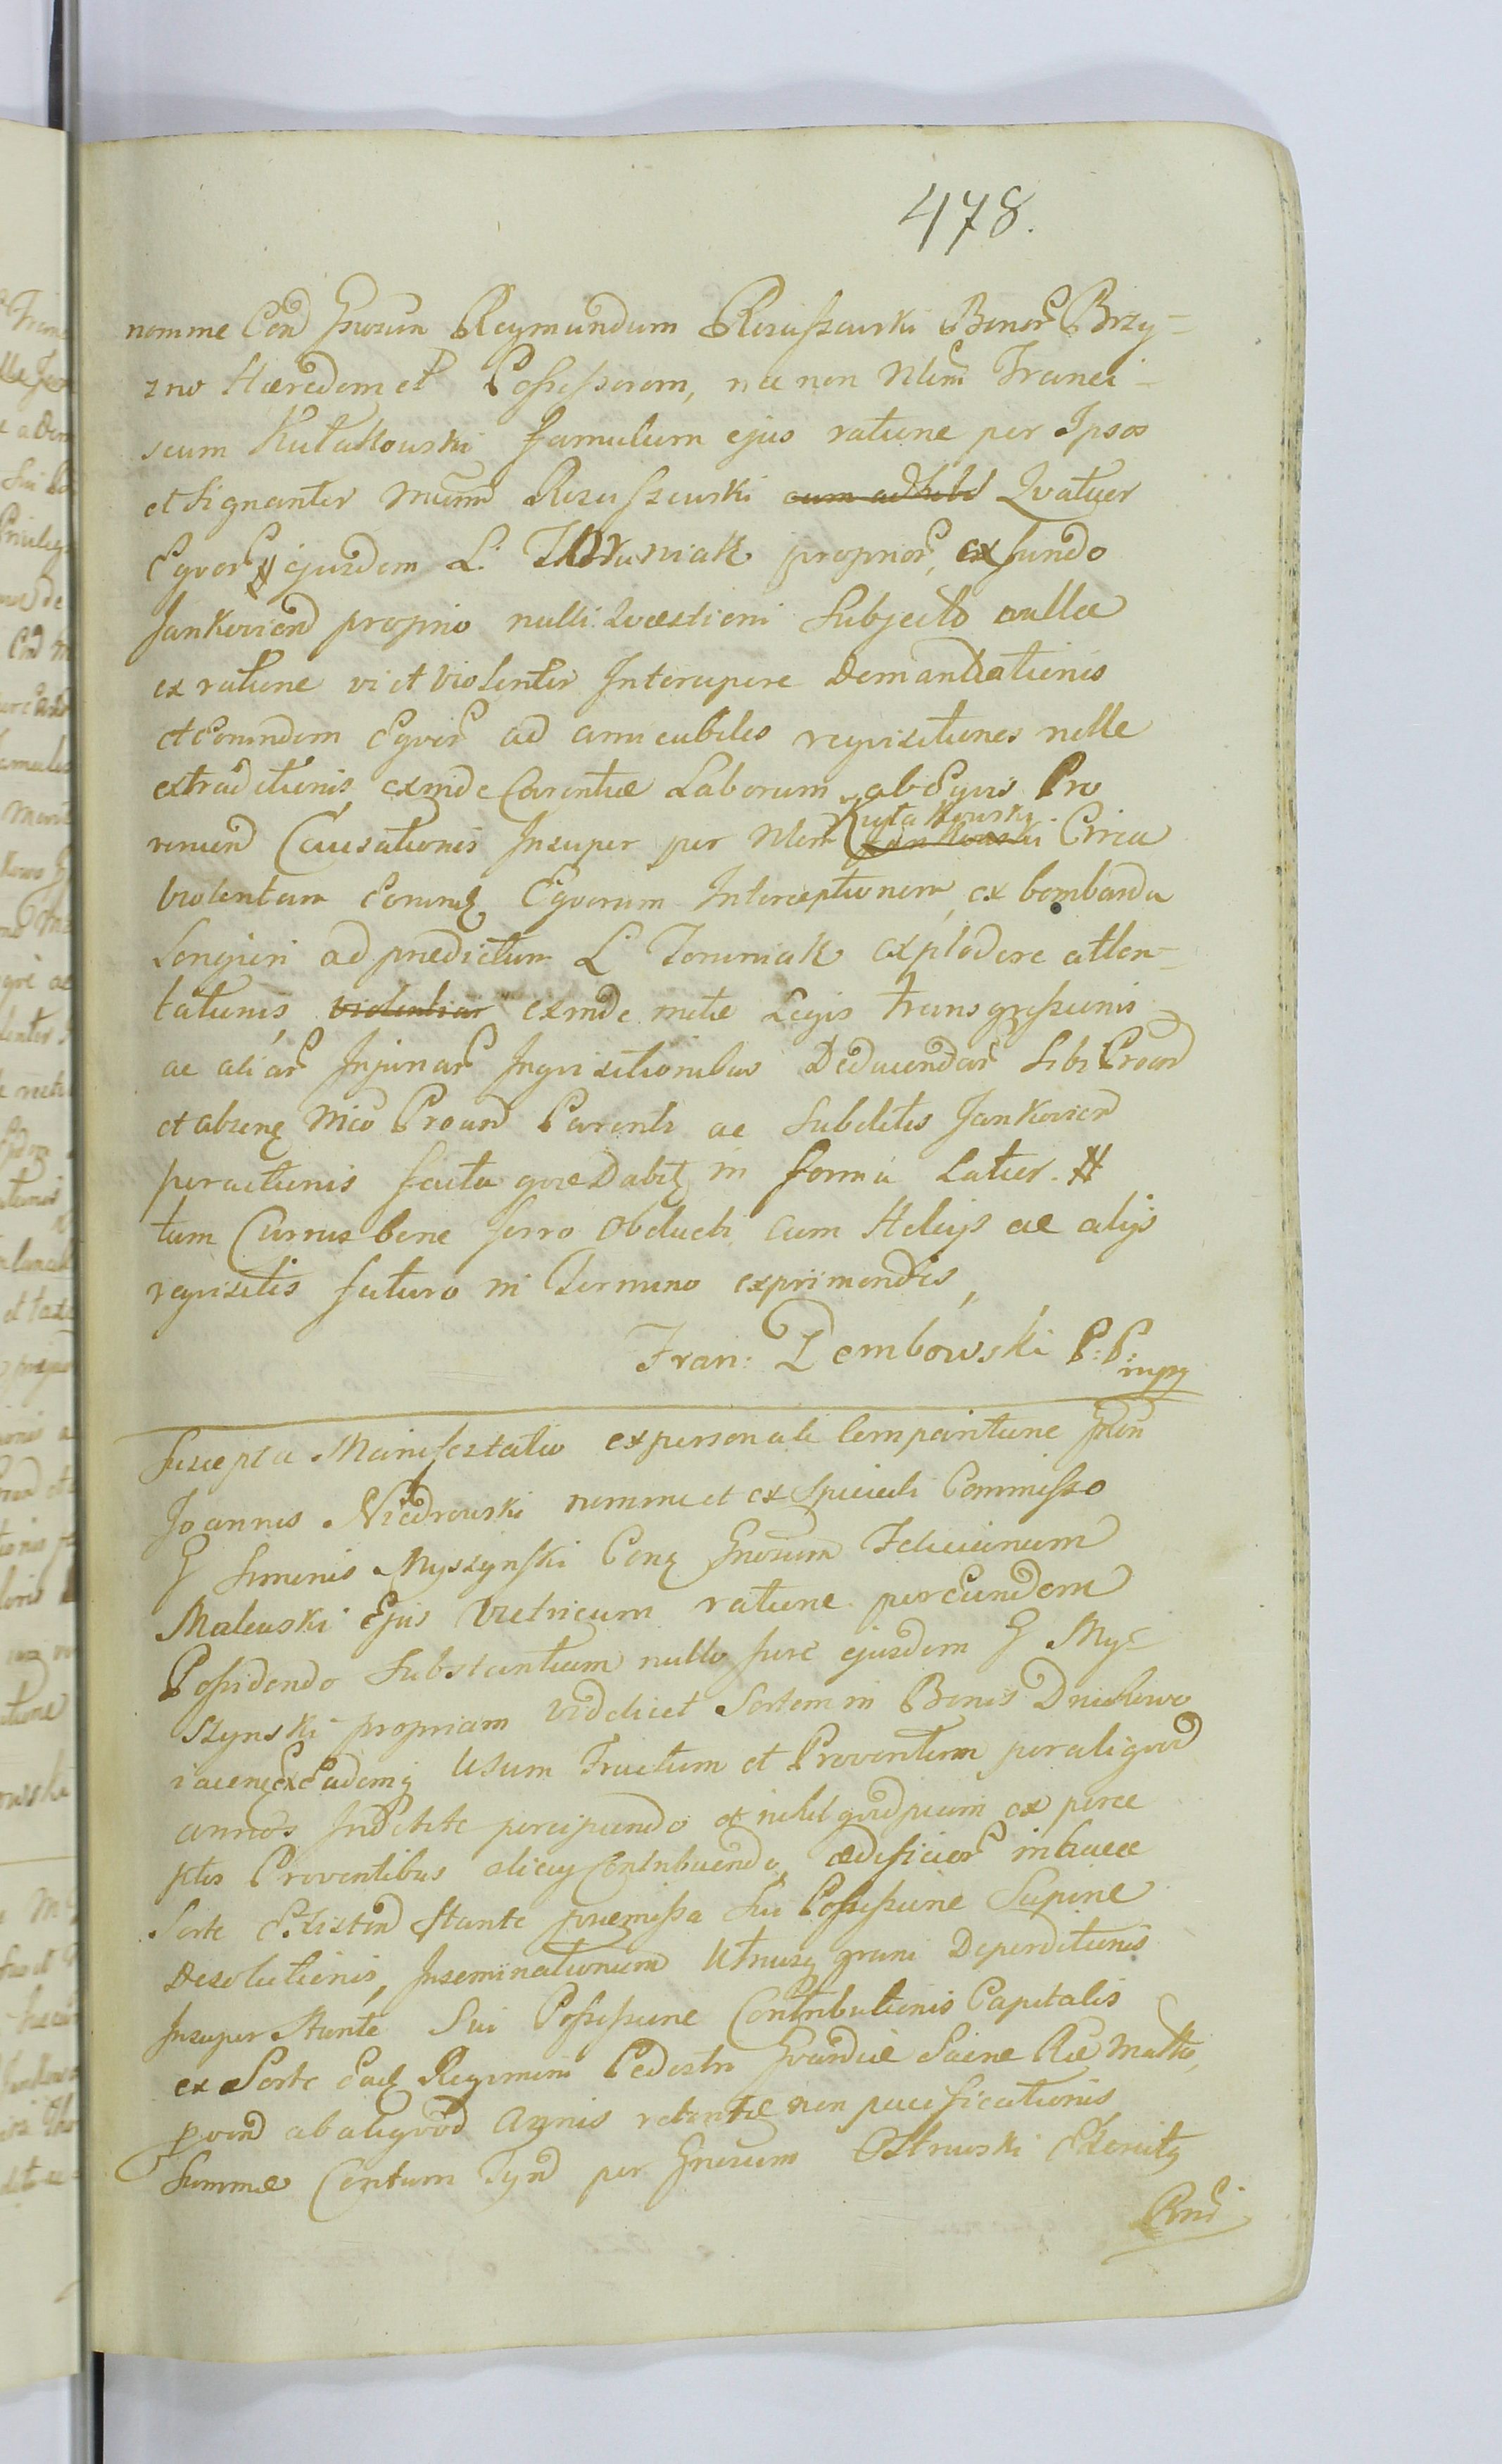 478.
nomine Con Gnosum Reymundum Rziszewski Bonor Brzy=
zno Hæredem et Possessorem, nec non Nlem Franci-
scum Kutakowski famulum ejus ratione per Ipsos
et Signanter Rziszewski cum adhibit Qvatuor
Eqvor # ejusdem L. Toruniak proprior, ex fundo
Jankovien proprio nulli Qvæstioni Subjecto nulla
ex ratione vi et violenter Intercipere Demandationis
et Eorundem Eqvor ad amicabiles reqvisitiones nolle
extraditionis, exinde Carentiæ Laborum ab Eqvis Pro
venien Causationis Insuper per Nlem Kutakowski Circa
violentam Eorund Eqvorum Interceptionem, ex bombarda
Longiori ad prædictum L Toruniak explodere atten=
tationis violentiar exinde metæ Legis transgressionis
ac aliar Injuriar Inqvisitionibus Deducendar Sibi Proan
et absenq Proan Parenti ac Subditis Jankovien
peractionis facta qve Dabit in forma Latior. #
tum Currus bene ferro obducti cum Helcijs ac alijs
reqvisitis futuro in Termino exprimendis,
Fran: Dembowski P:P: mpp
Suscepta Manifestatio ex personali Comparitione
Joannis Niedrowski nomine et ex Speciali Commisso
G Simonis Myszynski Conq Gnosum Felicianum
Malewski Ejus Vitricum ratione per Eundem
Possidendo Substantiam nullo jure ejusdem G My=
szynski propriam videlicet Sortem in Bonis
iacen ex Eademq Usum Fructum et Proventum per aliqvod
annos Indebite percipiendo et nihil qvidpiam ex perce
ptis Proventibus alicuj Contribuendo, ædificior in hacce
Sorte Existen Stante præmissa Sui Possessione Supinæ
Desolationis, Inseminationum Utriusq grani Deperditionis
Insuper Stante Sui Possessione Contributionis Capitalis
ex Sorte Ead Regimini Pedestri Gvardiæ Sacræ Ræ Mattis,
proven ab aliqvod Annis retentæ non pacificationis
Summæ Centum Tynf per Gnosum Ostrowski